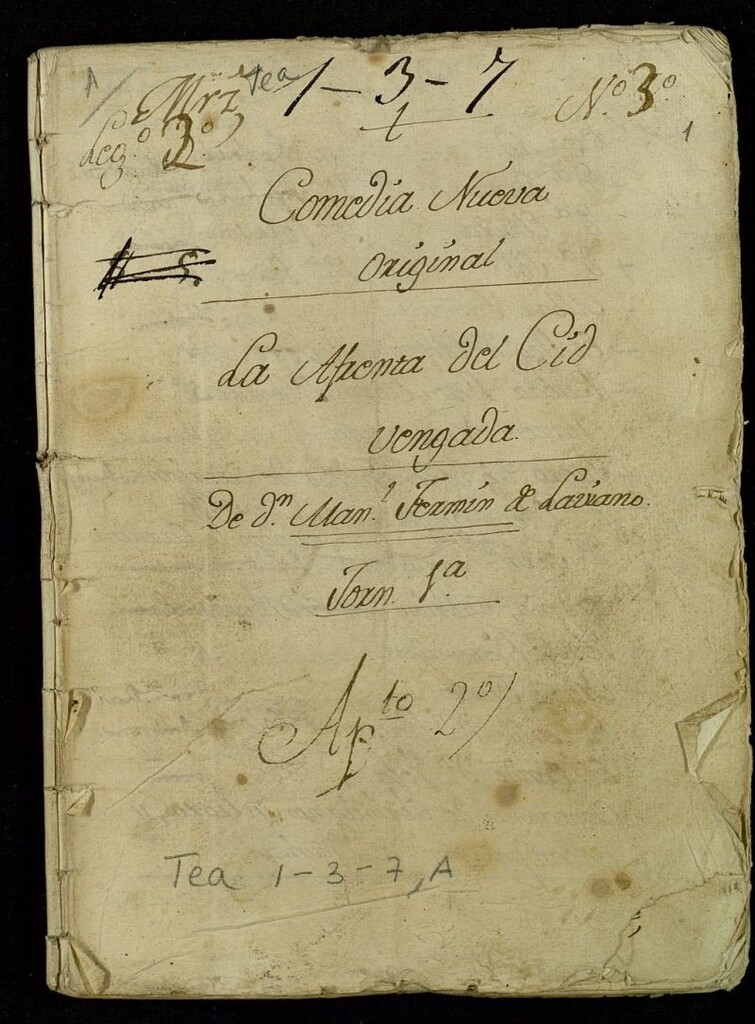 A
Tea 1-3-7
Nº 3º
Legº 3º
1
Comedia Nueva
Original
La Afrenta del Cid
vengada.
De dⁿ Manˡ Fermin de Laviano.
Jorn. 1ª
Apᵗᵒ 2º
Tea 1-3-7, A